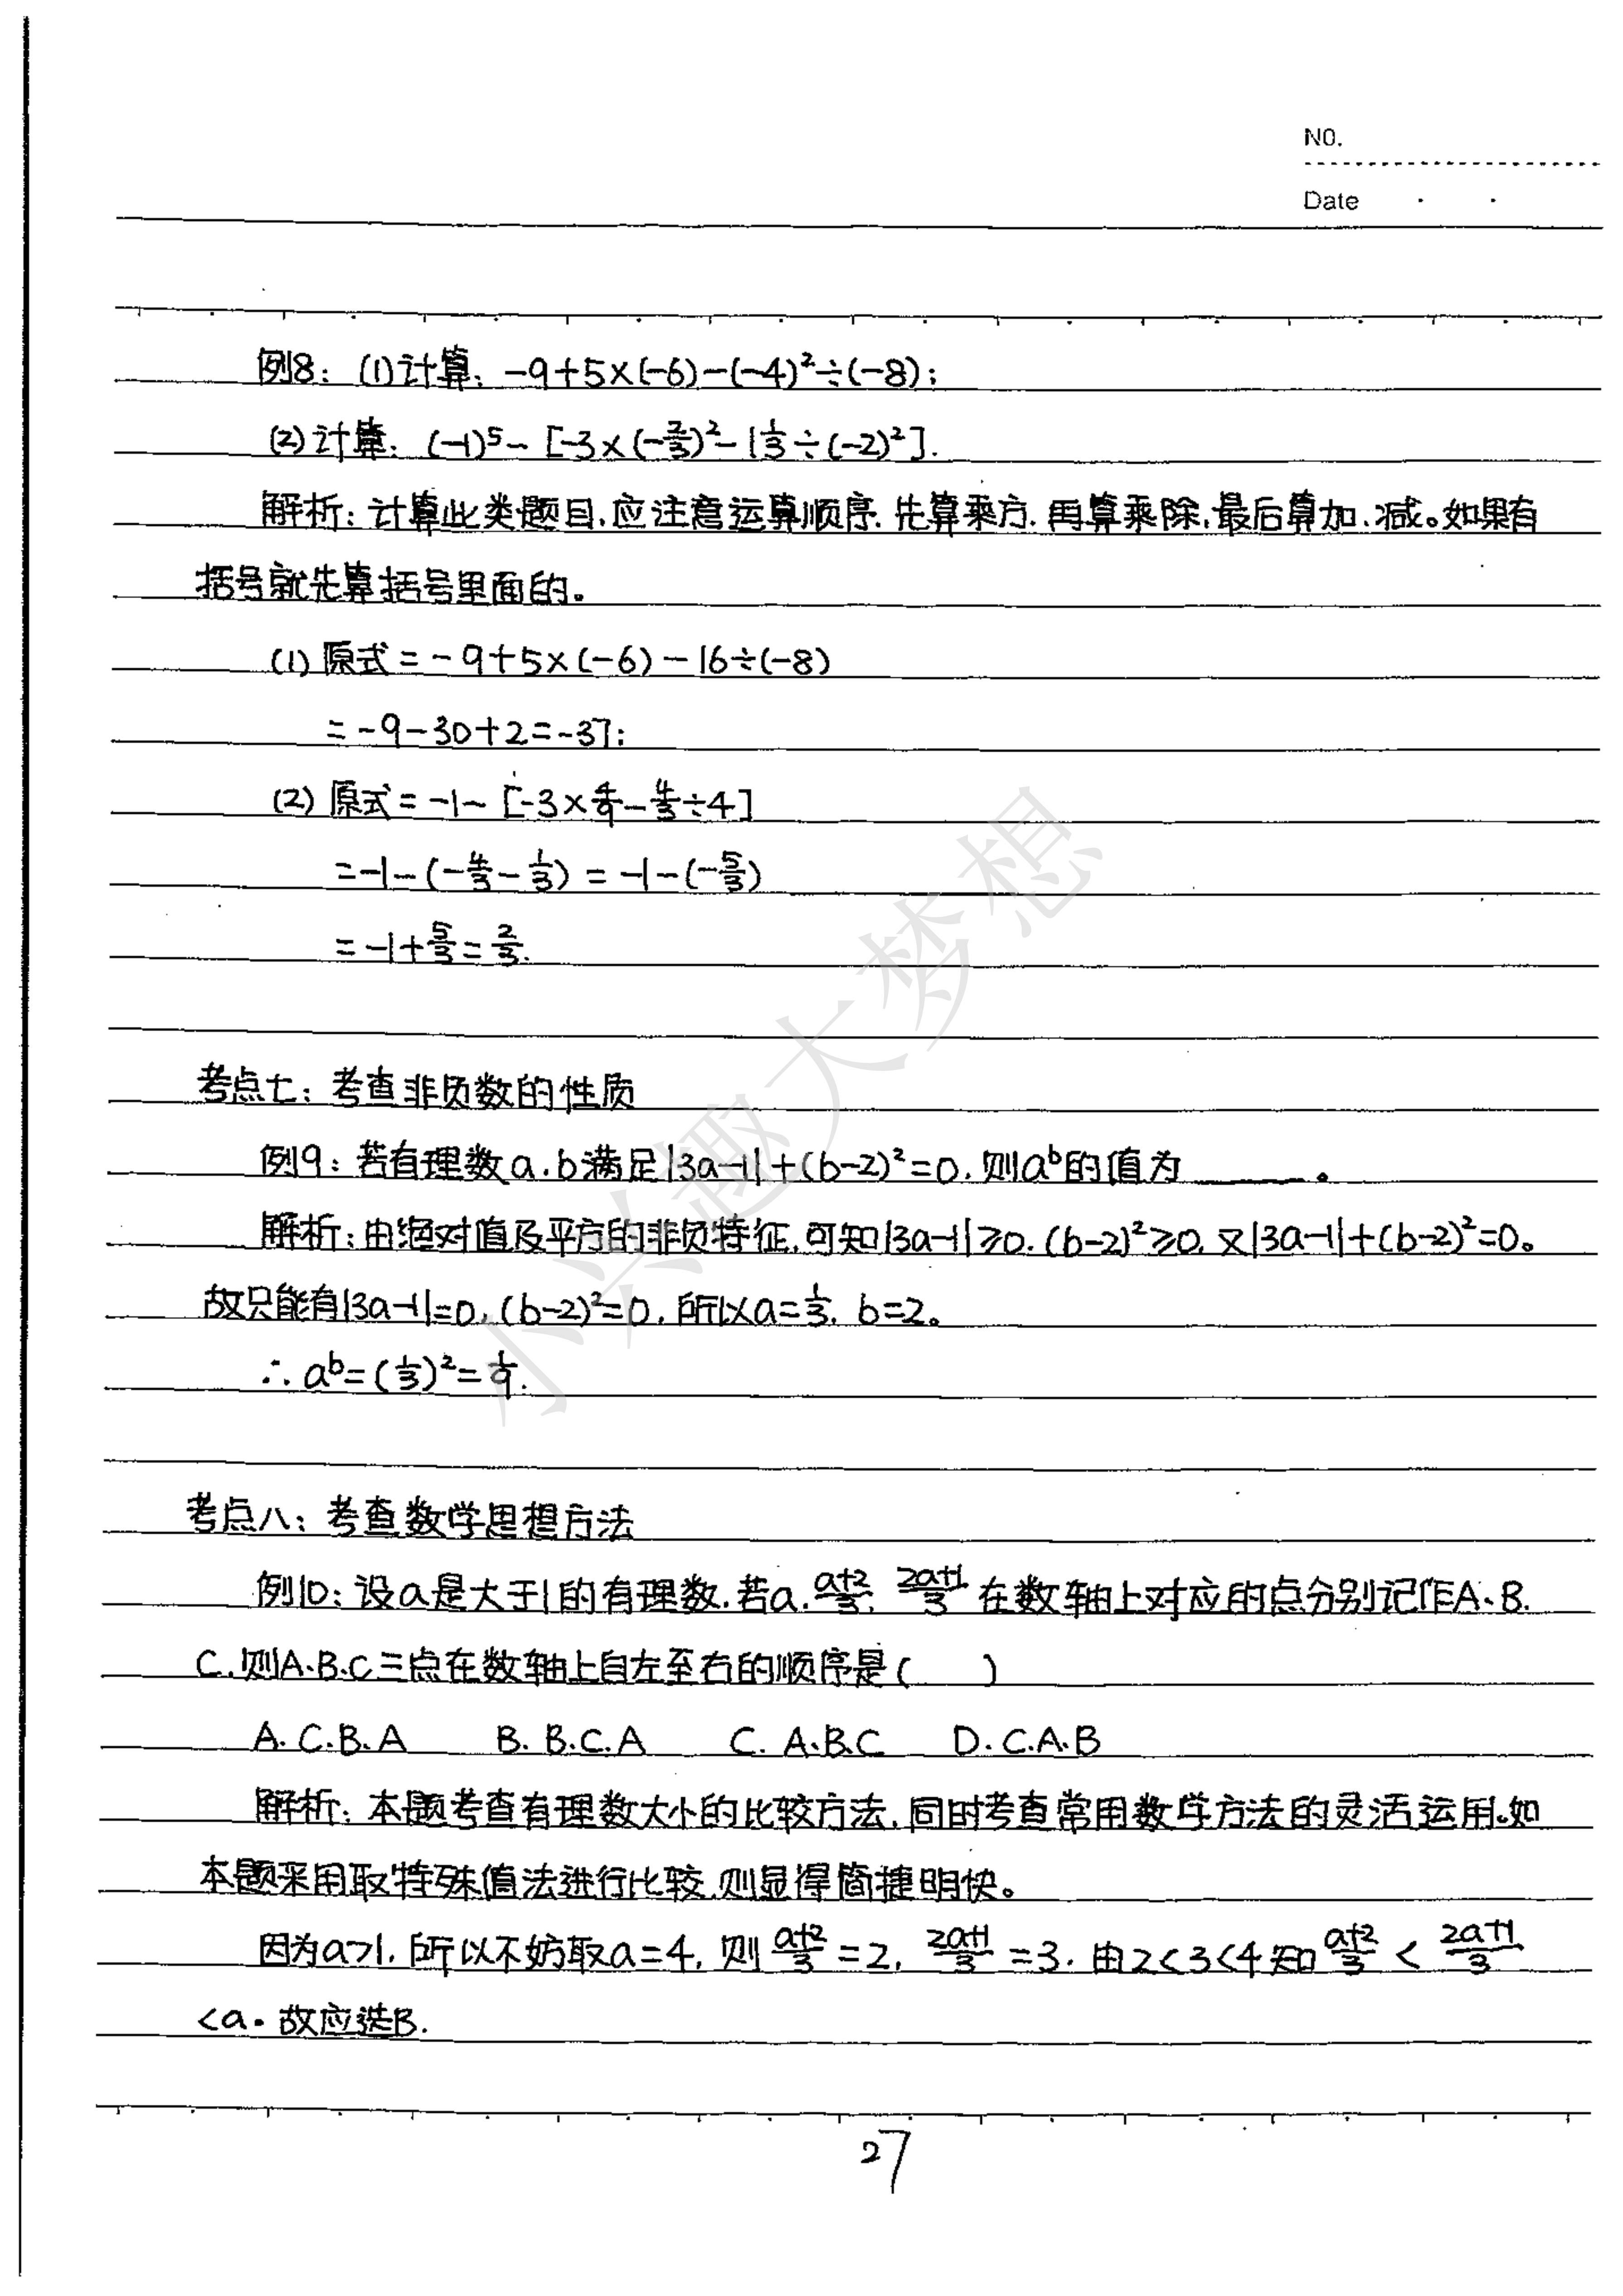 NO.
Date
例8：(1)计算：-9+5×(-6)-(-4)²÷(-8)；
(2)计算：(-1)⁵-[-3×(-2/3)²-1 1/3÷(-2)²].
解析：计算此类题目,应注意运算顺序.先算乘方.再算乘除,最后算加、减。如果有
括号就先算括号里面的。
(1)原式=-9+5×(-6)-16÷(-8)
=-9-30+2=-37；
(2)原式=-1-[-3×4/9-4/3÷4]
=-1-(-4/3-1/3)=-1-(-5/3)
=-1+5/3=2/3.
考点七：考查非负数的性质
例9：若有理数a.b满足|3a-1|+(b-2)²=0.则aᵇ的值为____。
解析：由绝对值及平方的非负特征,可知|3a-1|≥0.(b-2)²≥0,又|3a-1|+(b-2)²=0。
故只能有|3a-1|=0,(b-2)²=0,所以a=1/3.b=2。
∴aᵇ=(1/3)²=1/9.
考点八：考查数学思想方法
例10：设a是大于1的有理数.若a.(a+2)/3.(2a+1)/3在数轴上对应的点分别记作A、B.
C.则A.B.C三点在数轴上自左至右的顺序是( )
A. C.B.A B. B.C.A C. A.B.C D. C.A.B
解析：本题考查有理数大小的比较方法,同时考查常用数学方法的灵活运用.如
本题采用取特殊值法进行比较,则显得简捷明快。
因为a>1.所以不妨取a=4,则(a+2)/3=2,(2a+1)/3=3.由2<3<4知(a+2)/3<(2a+1)/3
<a.故应选B.
27
小兴趣大梦想